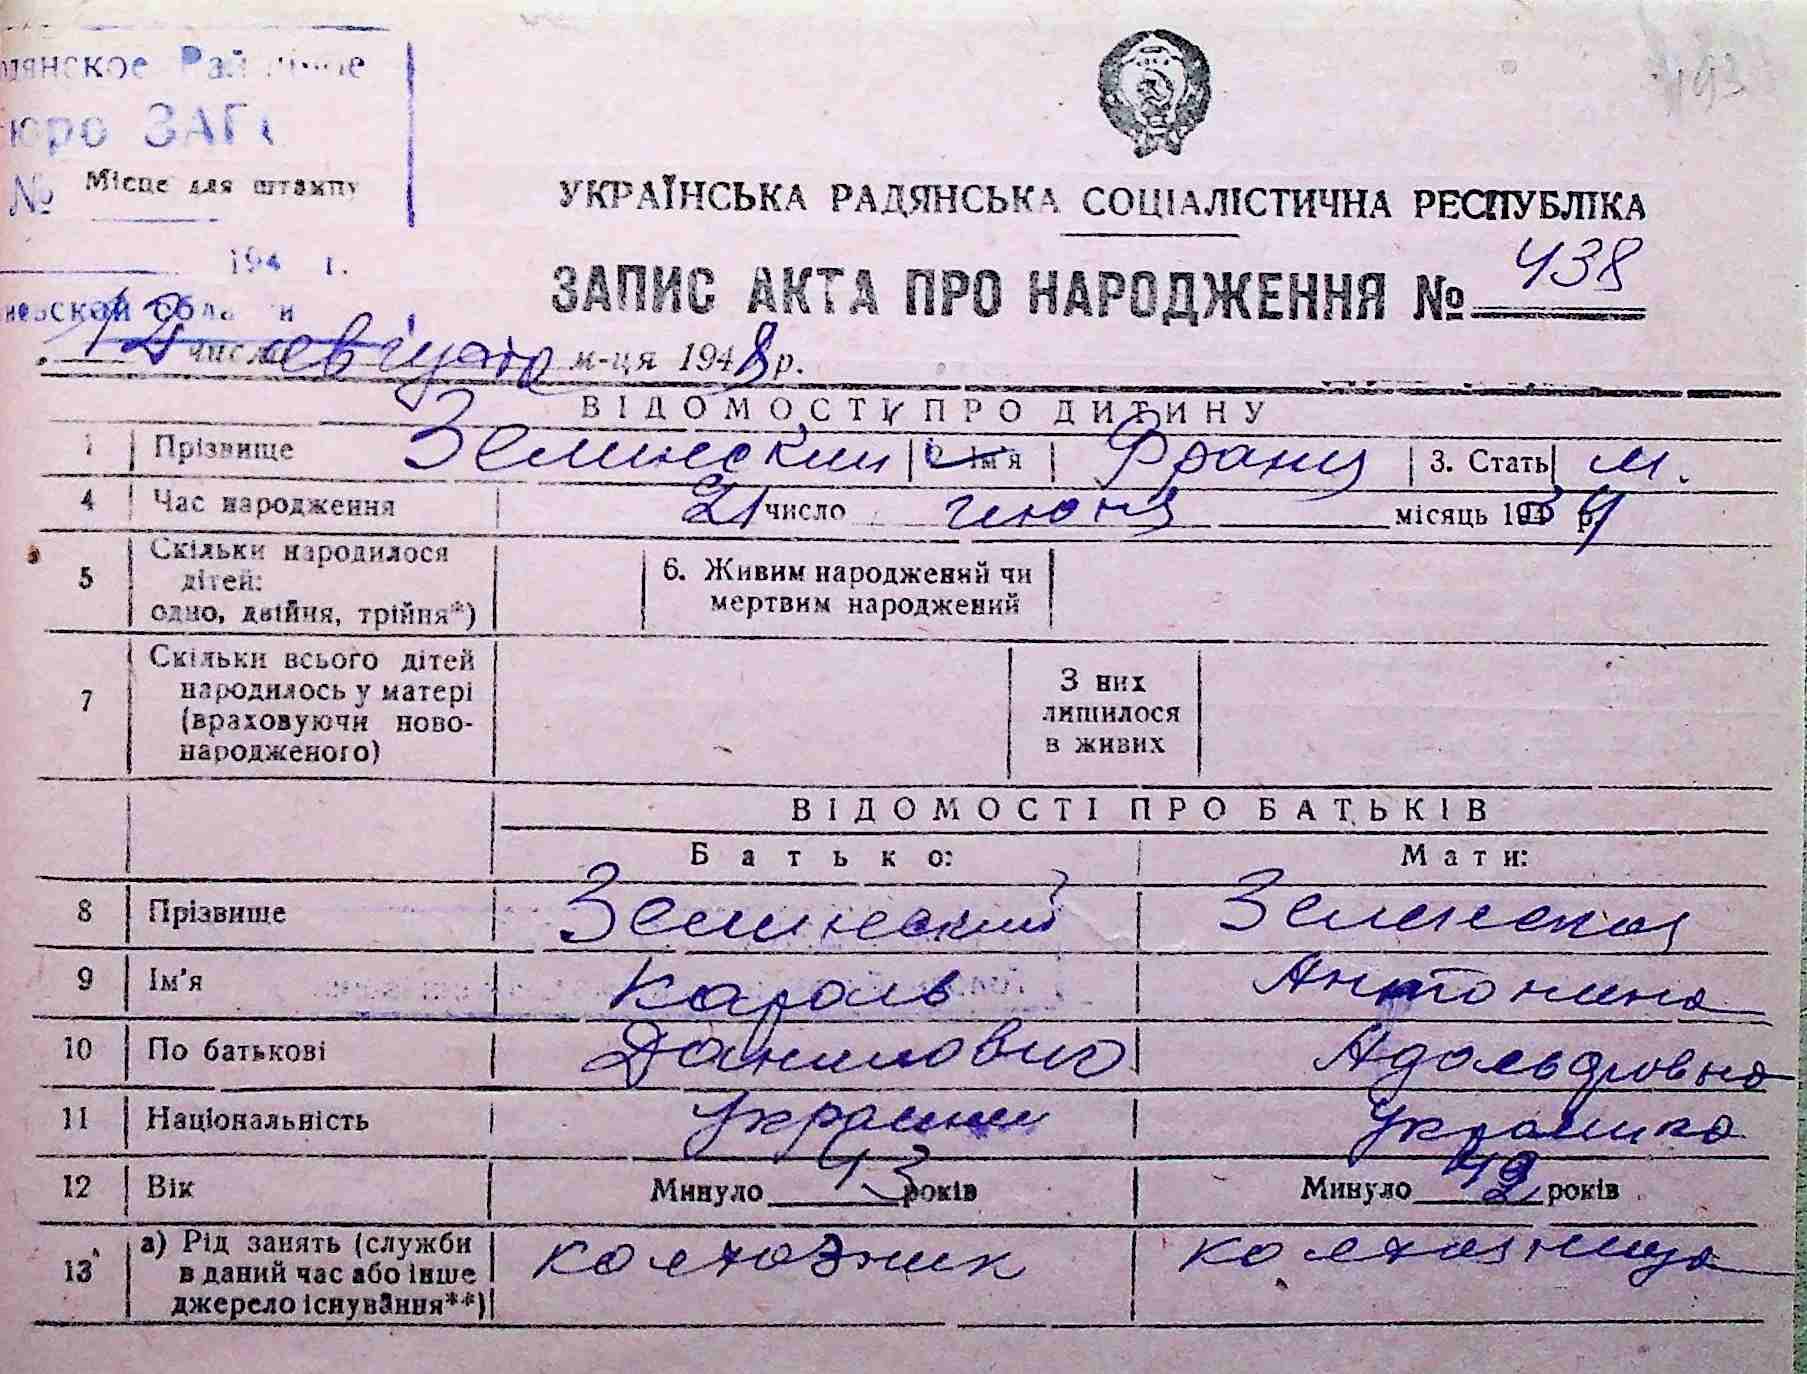 Районное
бюро ЗАГС
№ Місце для штампу
194 г.
області
УКРАЇНСЬКА РАДЯНСЬКА СОЦІАЛІСТИЧНА РЕСПУБЛІКА
ЗАПИС АКТА ПРО НАРОДЖЕННЯ № 438
12 число августа м-ця 1948 р.
ВІДОМОСТІ ПРО ДИТИНУ
1 Прізвище Земинский 2. Ім'я Франц 3. Стать м.
4 Час народження 21 число июня місяць 1934 р.
5 Скільки народилося дітей: одно, двійня, трійня*) 6. Живим народжений чи мертвим народжений
7 Скільки всього дітей народилось у матері (враховуючи новонародженого) З них лишилося в живих
ВІДОМОСТІ ПРО БАТЬКІВ
Батько: Мати:
8 Прізвище Земинский Земинская
9 Ім'я Кароль Антонина
10 По батькові Данилович Адольфовна
11 Національність Украинец Украинка
12 Вік Минуло 43 років Минуло 42 років
13 а) Рід занять (служби в даний час або інше джерело існування**) колхозник колхозница